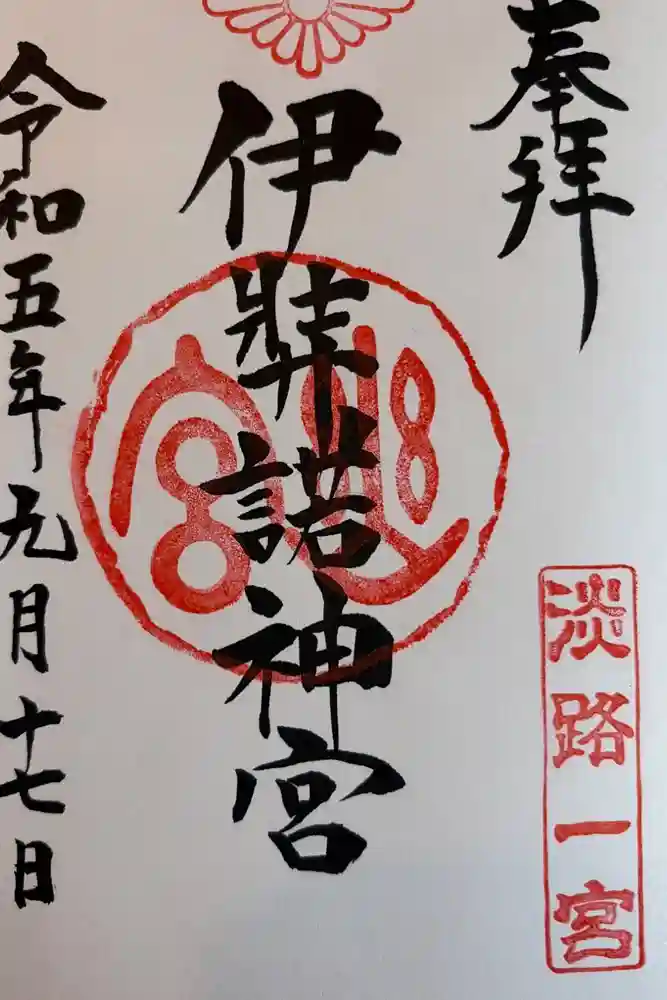 奉拝
淡路一宮
伊弉諾神宮
幽宮
令和五年九月十七日